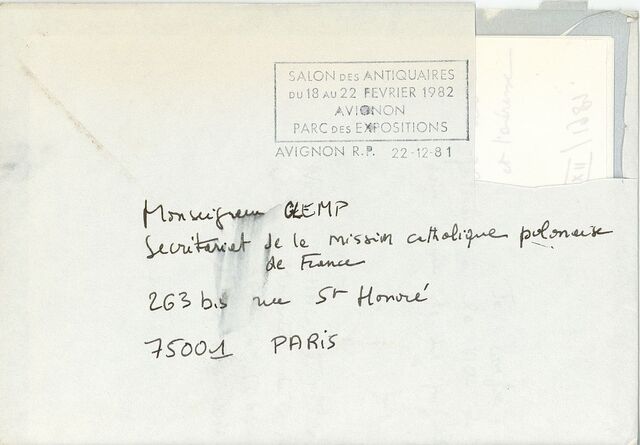 SALON DES ANTIQUAIRES
DU 18 AU 22 FEVRIER 1982
AVIGNON
PARC DES EXPOSITIONS
AVIGNON R.P. 22-12-81
et l'adresse
XII/1981
Monseigneur GLEMP
Secrétariat de la mission catholique polonaise
de France
263 bis rue St Honoré
75001 PARIS